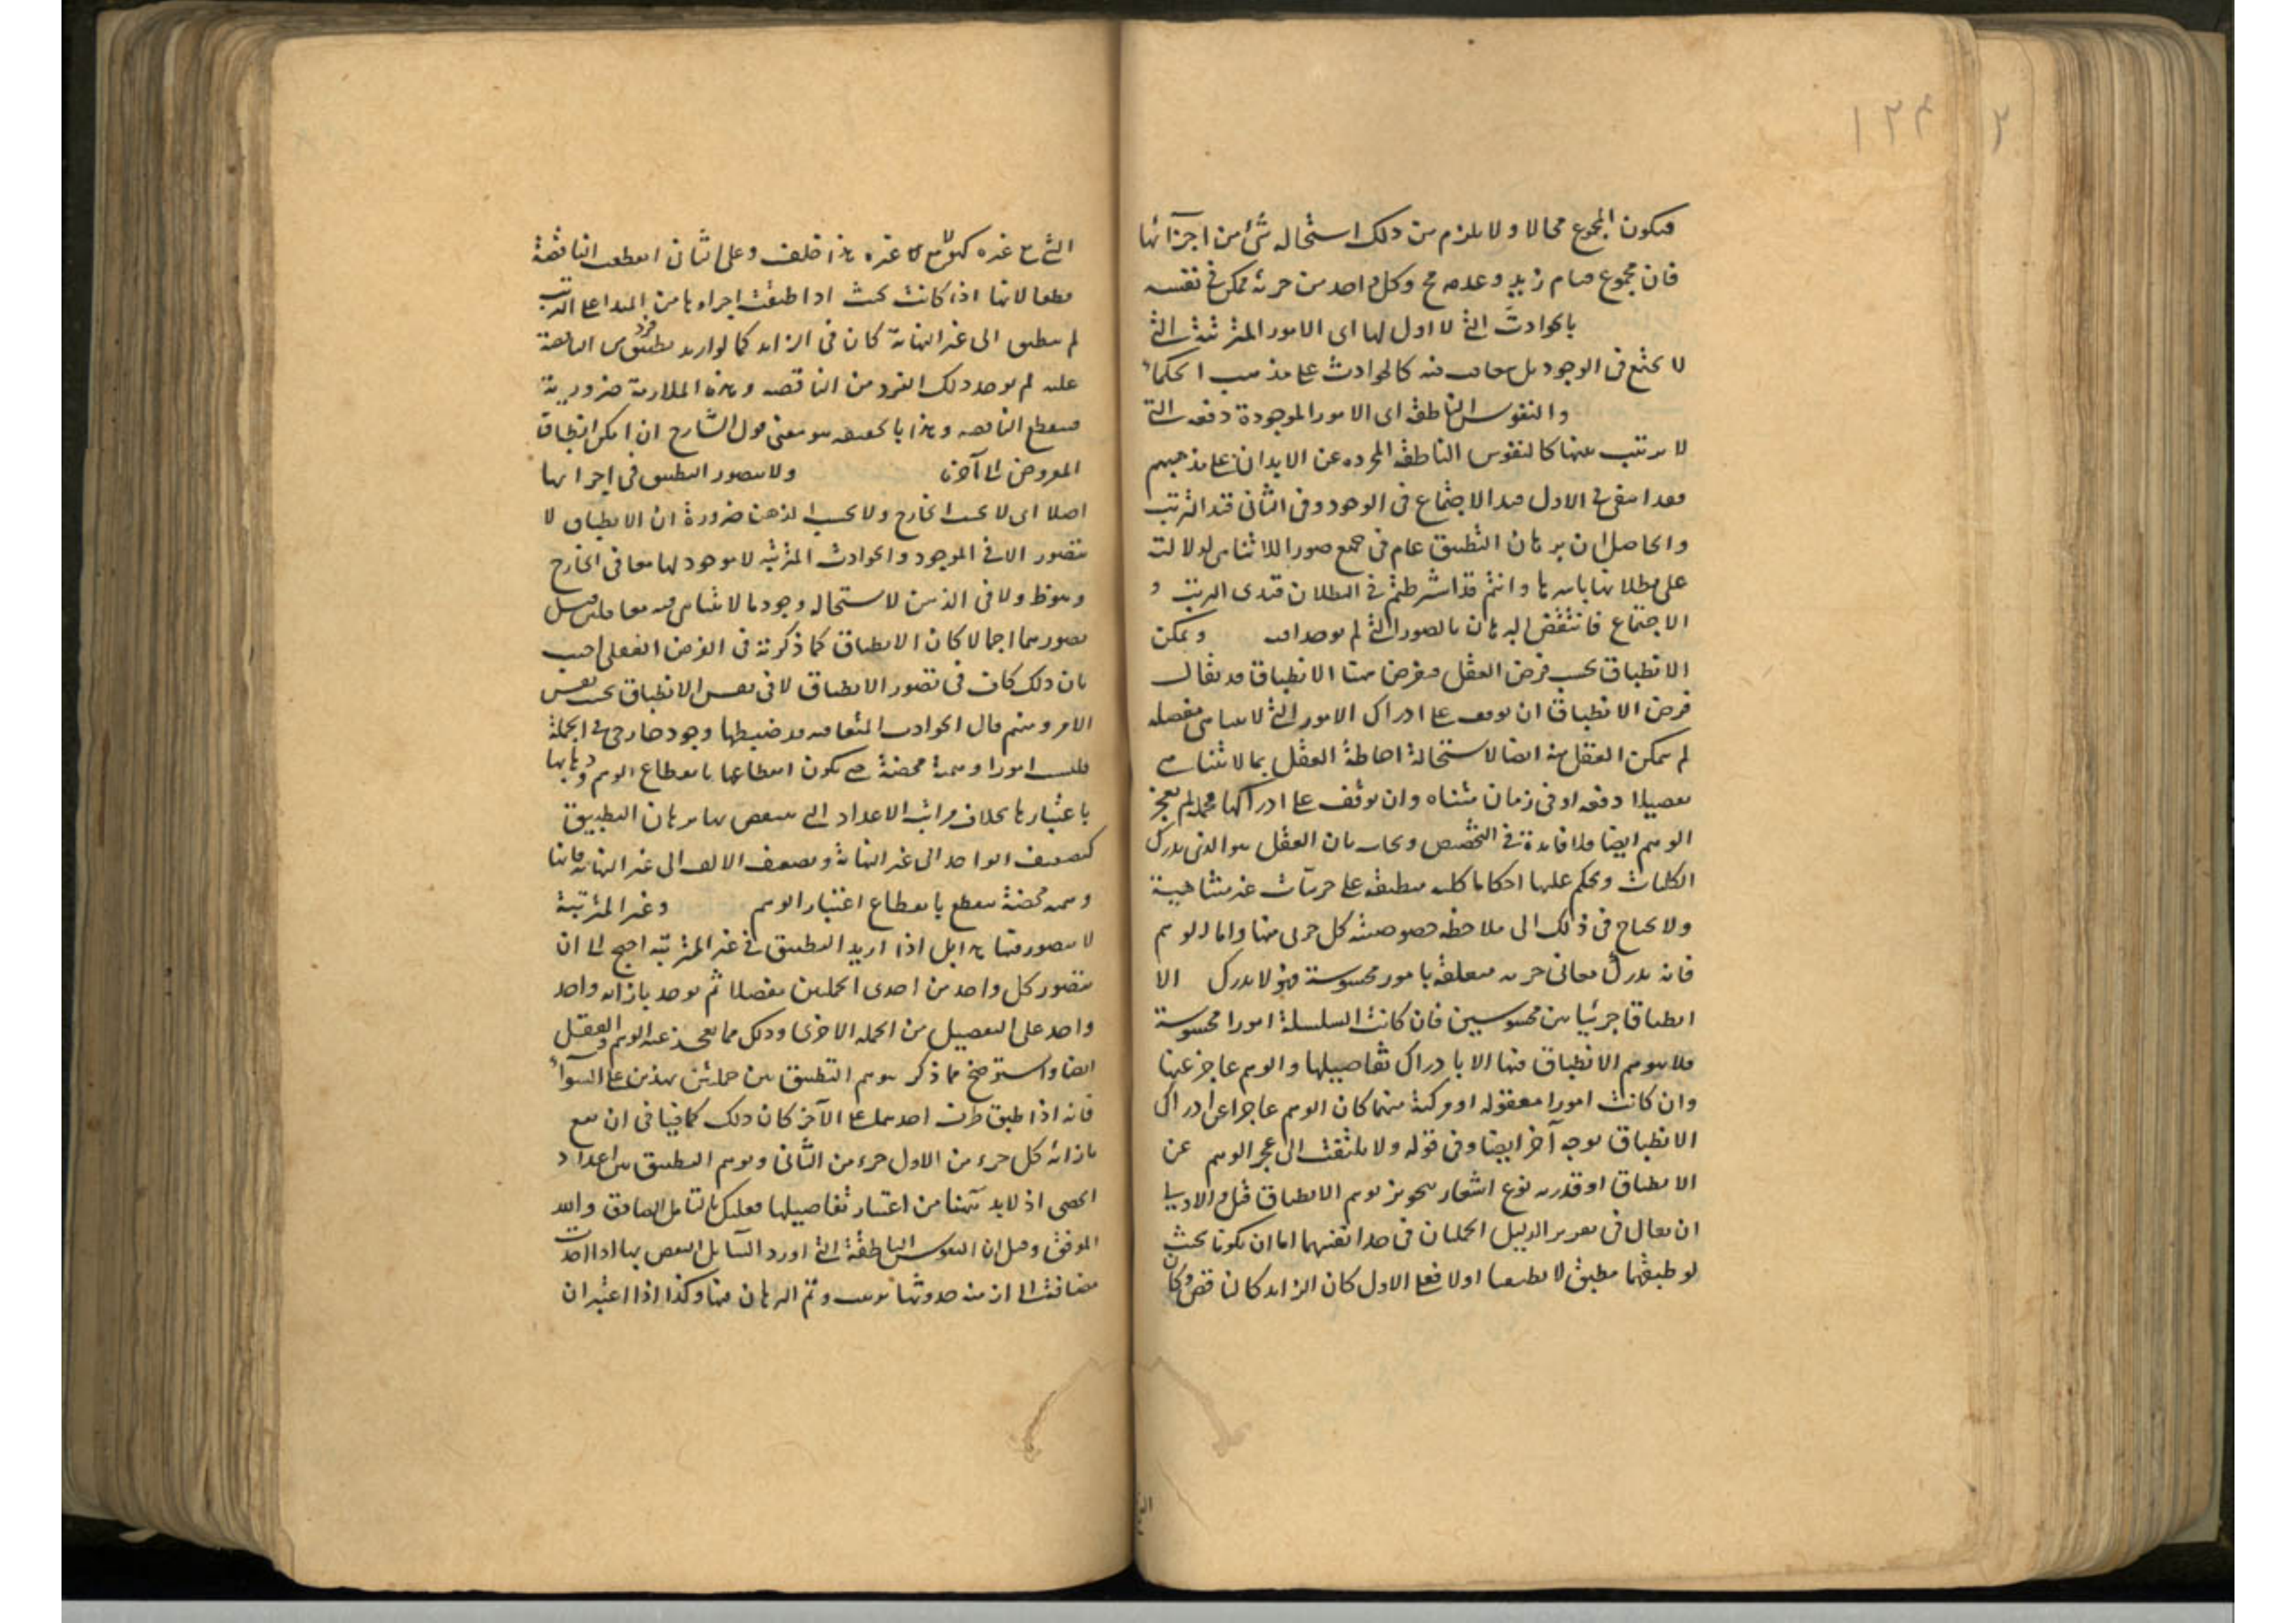 ١٢٣
٢
فيكون المجموع محالا ولا يلزم من ذلك استحالة شئ من اجزائها
فان مجموع قيام زيد وعدمه مح وكل واحد من جزئه ممكن في نفسه
بالحوادث التي لا اول لها اى الامور المترتبة التي
لا تجتمع في الوجود بل متعاقبة كالحوادث على مذهب الحكماء
والنفوس الناطقة اى الامور الموجودة دفعة التي
لا ترتب بينها كالنفوس الناطقة المجردة عن الابدان على مذهبهم
فقد انتفى في الاول قيد الاجتماع في الوجود وفي الثاني قيد الترتب
والحاصل ان برهان التطبيق عام في جميع صور اللاتناهى لدلالته
على بطلانها باسرها وانتم قد اشترطتم في البطلان قيدى الترتب و
الاجتماع فانتقض البرهان بالصور التي لم يوجدا فيه ويمكن
الانطباق بحسب فرض العقل الانطباق قد يقال
فرض الانطباق ان توقف على ادراك الامور التي لا تتناهى مفصلة
لم يتمكن العقل منه ايضا لاستحالة احاطة العقل بما لا يتناهى
تفصيلا دفعة او في زمان متناه وان توقف على ادراكها مجملة لم يعجز
الوهم ايضا فلا فائدة في التخصيص ويجاب بان العقل هو الذى يدرك
الكليات ويحكم عليها احكاما كلية منطبقة على جزئيات غير متناهية
ولا يحتاج في ذلك الى ملاحظة خصوصية كل جزئى منها واما الوهم
فانه يدرك معانى جزئية متعلقة بامور محسوسة فهو لا يدرك الا
انطباقا جزئيا بين محسوسين فان كانت السلسلة امورا محسوسة
فلا يتوهم الانطباق فيها الا بادراك تفاصيلها والوهم عاجز عنها
وان كانت امورا معقولة او مركبة منهما كان الوهم عاجزا عن ادراك
الانطباق بوجه آخر ايضا وفي قوله ولا يلتفت الى عجز الوهم عن
الانطباق او قدرته نوع اشعار بتجويز توهم الانطباق قيل والاولى
ان يقال في تقرير الدليل الجملتان في حد انفسهما اما ان تكونا بحيث
لو طبقتهما مطبق لانطبقتا اولا فعلى الاول كان الزائد كالناقص وكان
الشئ مع غيره كهو لا مع غيره هذا خلف وعلى الثانى انقطعت الناقصة
قطعا لانها اذا كانت بحيث اذا طبقت اجزاؤها من المبدا على الترتيب
لم تنطبق الى غير النهاية كان في الزائد كما لو اريد تطبيق فرد من الناقصة
عليه لم يوجد ذلك الفرد من الناقصة وهذه الملازمة ضرورية
فينقطع الناقصة وهذا بالحقيقة هو معنى قول الشارح ان امكن انطباق
المعروض الى آخره ولا يتصور التطبيق في اجزائها
اصلا اى لا بحسب الخارج ولا بحسب الذهن ضرورة ان الانطباق لا
يتصور الا في الموجود والحوادث المترتبة لا وجود لها معا في الخارج
وهو ظ ولا في الذهن لاستحالة وجود ما لا يتناهى فيه معا فان قيل
تصورهما اجمالا كان الانطباق كما ذكرته في الفرض العقلى اجيب
بان ذلك كاف في تصور الانطباق لا في نفس الانطباق بحسب نفس
الامر ومنهم قال الحوادث المتعاقبة قد ضبطها وجود خارجى في الجملة
فليست امورا وهمية محضة حتى يكون انقطاعها بانقطاع الوهم وذهابها
باعتبارها بخلاف مراتب الاعداد التي ينتقض بها برهان التطبيق
كتضعيف الواحد الى غير النهاية وتضعيف الالف الى غير النهاية فانها
وهمية محضة تنقطع بانقطاع اعتبار الوهم وغير المترتبة
لا يتصور فيها هذا بل اذا اريد التطبيق في غير المترتبة احتيج الى ان
يتصور كل واحد من احدى الجملتين مفصلا ثم يوجد بازائه واحد
واحد على التفصيل من الجملة الاخرى وذلك مما يعجز عنه الوهم والعقل
ايضا واستوضح مما ذكر توهم التطبيق بين جملتين ممتدتين على السواء
فانه اذا طبق طرف احدهما على الآخر كان ذلك كافيا في ان يقع
بازاء كل جزء من الاول جزء من الثانى وتوهم التطبيق بين اعداد
الحصى اذ لابد هنا من اعتبار تفاصيلها فعليك بالتامل الصادق والله
الموفق وقيل ان النفوس الناطقة التي اورد السائل النقض بها اذا اخذت
مضافة الى ازمنة حدوثها ترتبت وتم البرهان فيها وكذا اذا اعتبر ان